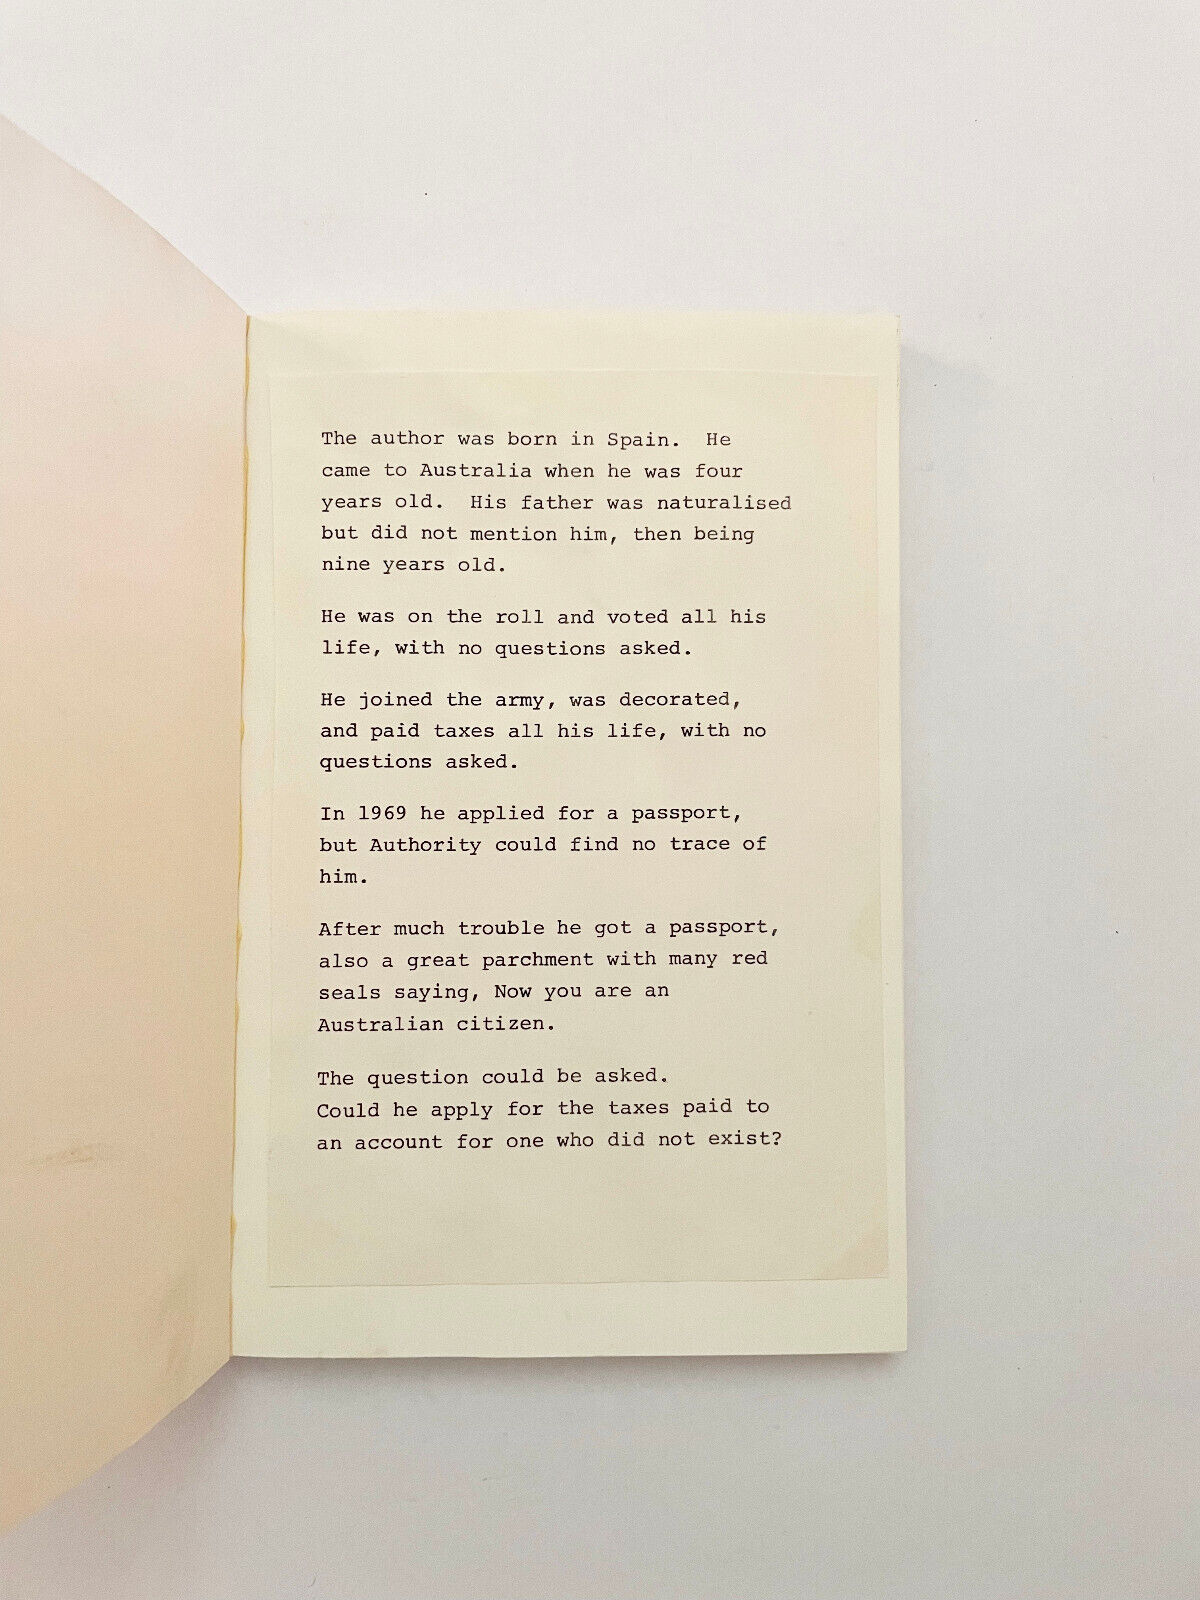 The author was born in Spain.  He
came to Australia when he was four
years old.  His father was naturalised
but did not mention him, then being
nine years old.
He was on the roll and voted all his
life, with no questions asked.
He joined the army, was decorated,
and paid taxes all his life, with no
questions asked.
In 1969 he applied for a passport,
but Authority could find no trace of
him.
After much trouble he got a passport,
also a great parchment with many red
seals saying, Now you are an
Australian citizen.
The question could be asked.
Could he apply for the taxes paid to
an account for one who did not exist?